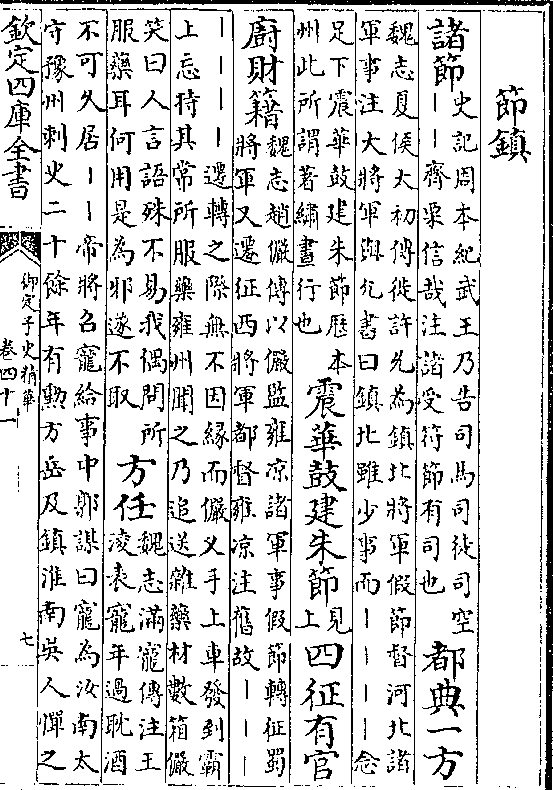 節鎮
諸節史記周本紀武王乃告司馬司徒司空
｜｜齊栗信哉注諸受符節有司也都典一方
魏志夏侯太初傳徙許允為鎮北將軍假節督河北諸
軍事注大將軍與允書曰鎮北雖少事而｜｜｜｜念
足下震華鼓建朱節歷本
州此所謂著繡晝行也震華鼓建朱節見上四征有官
廚財籍魏志趙儼傳以儼監雍涼諸軍事假節轉征蜀
將軍又遷征西將軍都督雍涼注舊故｜｜｜
｜｜｜｜遷轉之際無不因緣而儼叉手上車發到霸
上忘持其常所服藥雍州聞之乃追送雜藥材數箱儼
笑曰人言語殊不易我偶問所
服藥耳何用是為邪遂不取方任魏志滿寵傳注王
淩表寵年過耽酒
不可久居｜｜帝將召寵給事中郭謀曰寵為汝南太
守豫州刺史二十餘年有勲方岳及鎮淮南吳人憚之
欽定四庫全書
御定子史精華
卷四十一
七